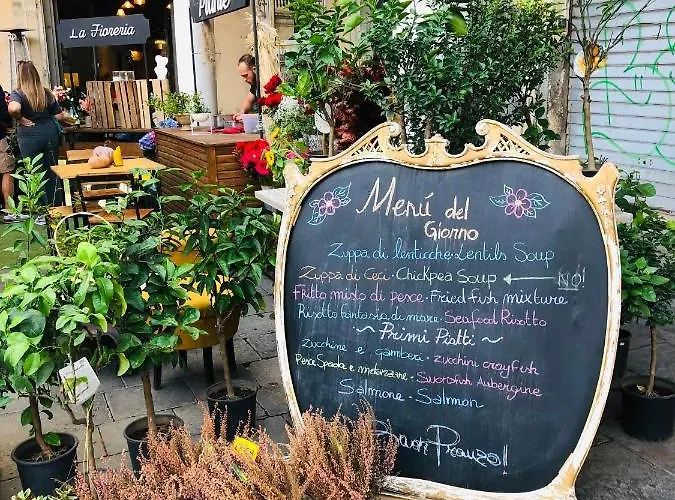 La Fioreria
Piante
Menú del
Giorno
Zuppa di lenticche·Lentils Soup
Zuppa di Ceci·Chickpea Soup ← NO!
Fritto misto di pesce·Fried fish mixture
Risotto fantasia di mare·Seafood Risotto
~Primi Piatti~
Zucchine e gamberi·zucchini crayfish
Pesce Spada e melanzane·Swordfish Aubergine
Salmone·Salmon
Buon Pranzo!